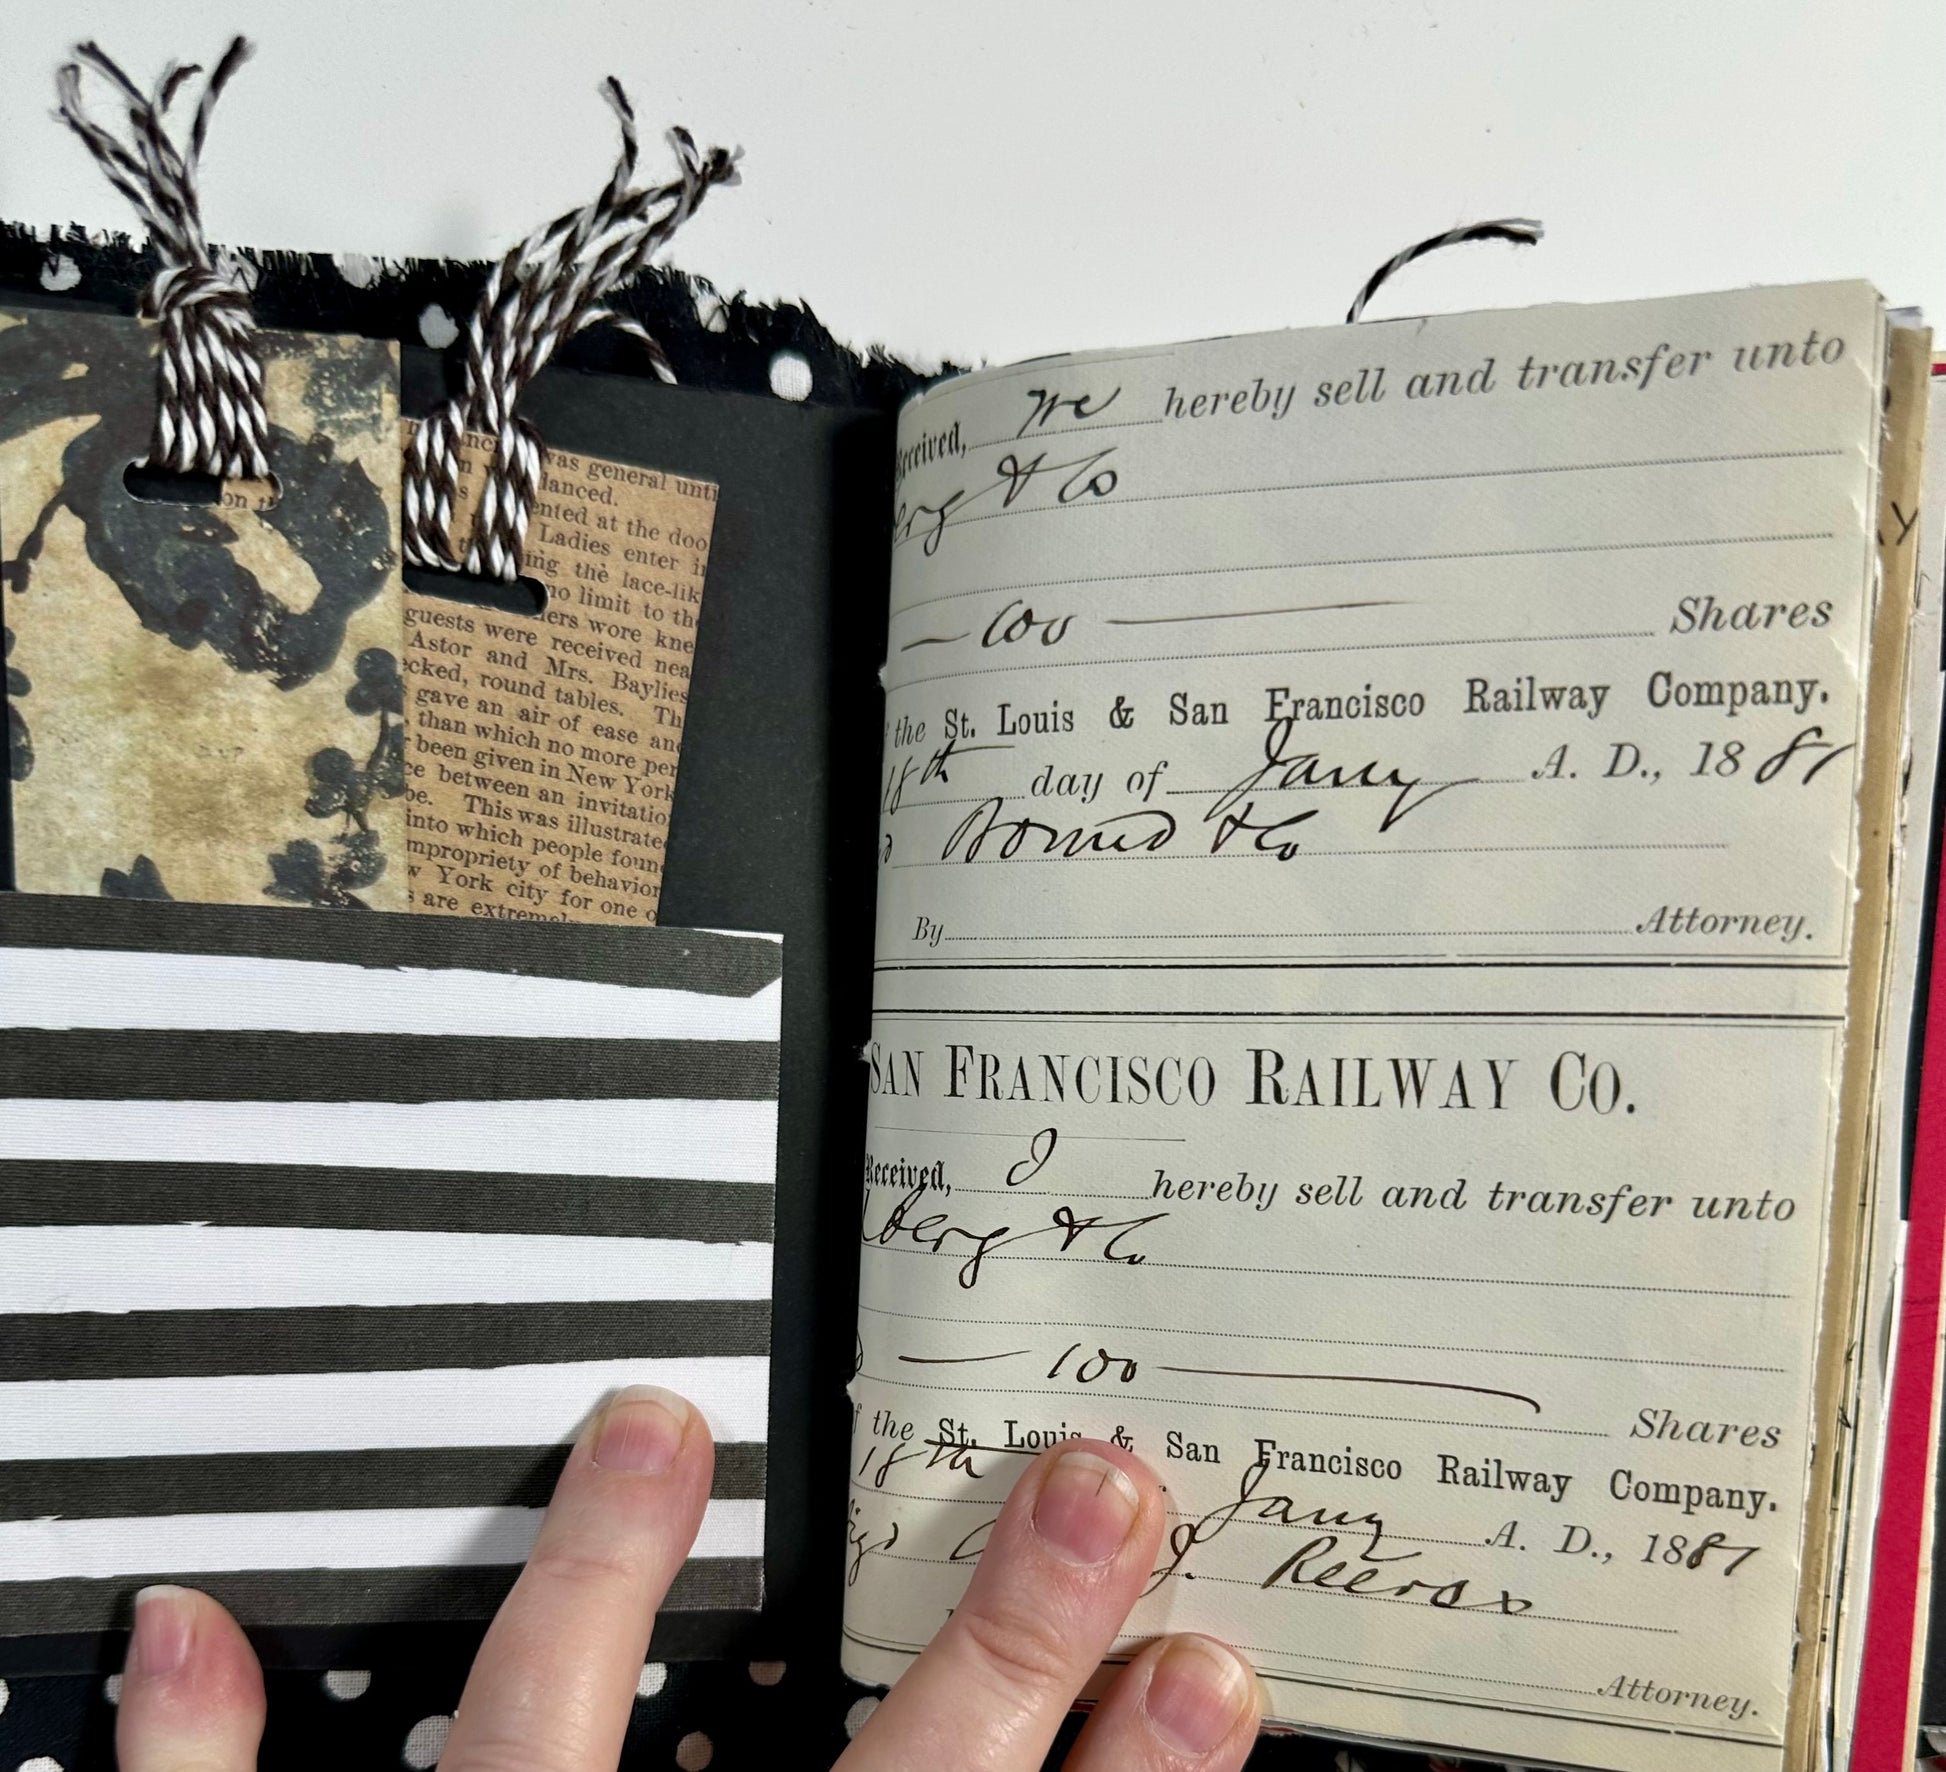 on t
was general unti
lanced.
ented at the doo
Ladies enter i
ing the lace-lik
no limit to th
ers wore kne
guests were received nea
Astor and Mrs. Baylies
cked, round tables. Th
gave an air of ease an
, than which no more per
been given in New York
ce between an invitatio
be. This was illustrate
into which people foun
mpropriety of behavior
w York city for one o
s are extremel
Received, We hereby sell and transfer unto
erg & Co
— 100 — Shares
the St. Louis & San Francisco Railway Company.
18th day of Jany A. D., 1881
& Co
By Attorney.
SAN FRANCISCO RAILWAY CO.
Received, I hereby sell and transfer unto
berg & Co
— 100 — Shares
f the St. Louis & San Francisco Railway Company.
18th Jany A. D., 1881
J.
Attorney.